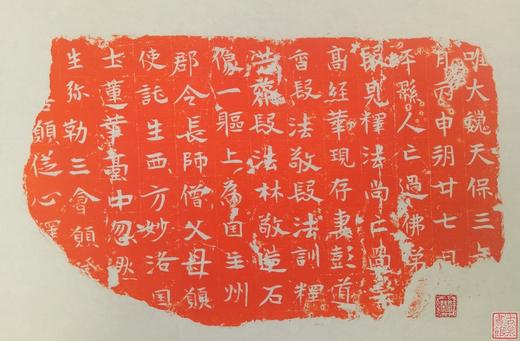 唯大魏天保三
月丙申朔廿七日
縣人亡過佛弟
見釋法尚亡過
高經華現存妻彭道
香段法敬段法訓釋
段法林敬造石
像一軀上為国主州
郡令長師僧父母願
使託生西方妙洛国
土蓮華臺中忽
生弥勒三會願
願從心